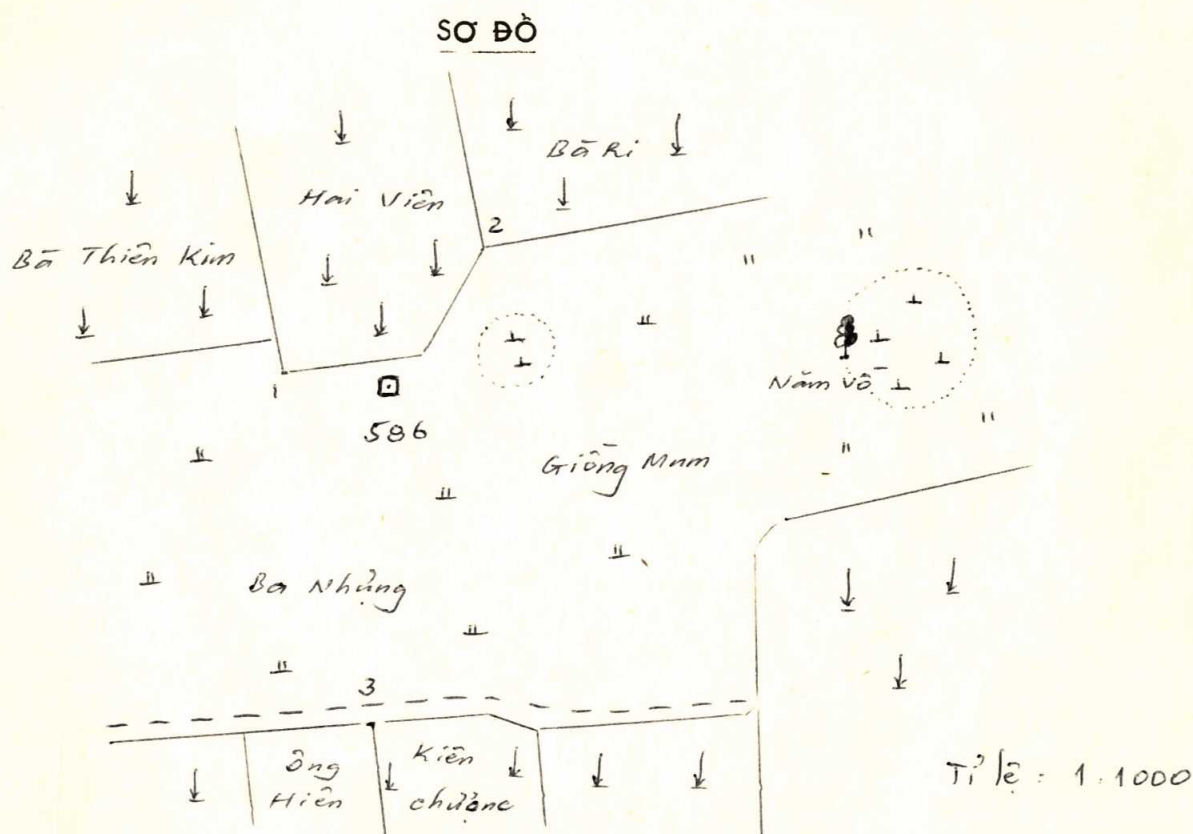 SƠ ĐỒ
Bà Ri
Hai Viên
2
Bà Thiên Kim
1
586
Năm Vồ
Giồng Mum
Ba Nhủng
3
Ông
Hiên
Kiên
chưởng
Tỉ lệ : 1:1000